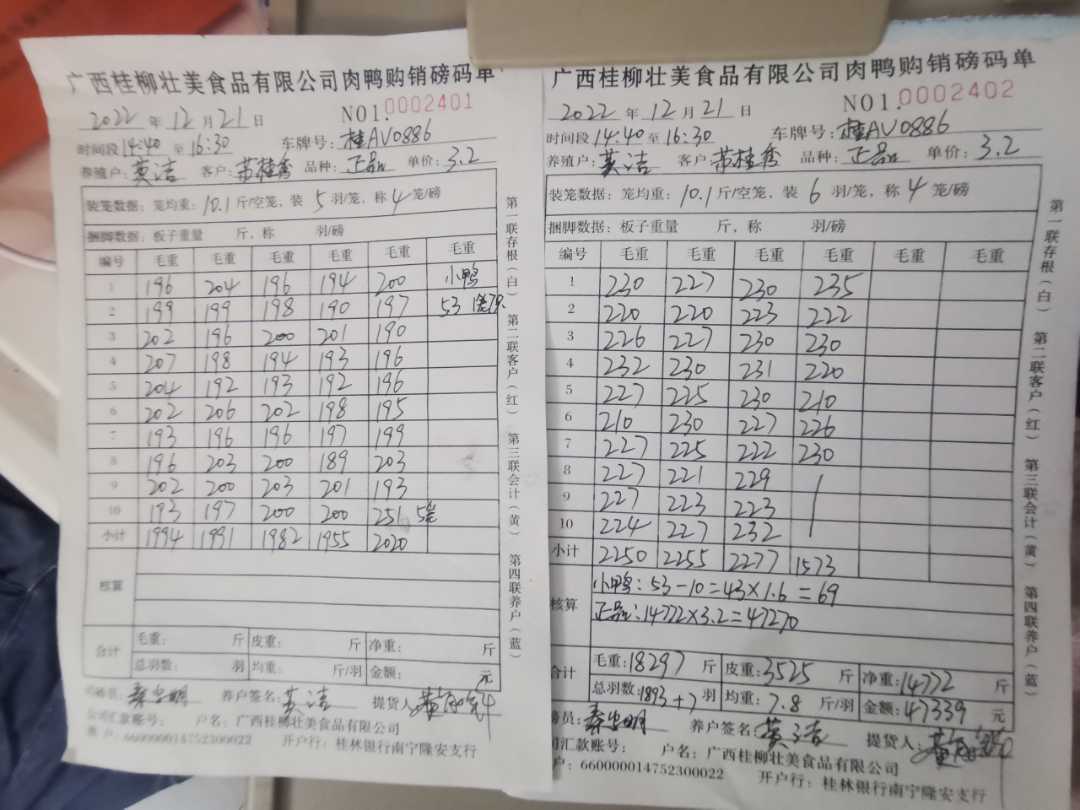 广西桂柳壮美食品有限公司肉鸭购销磅码单
2022 年 12 月 21 日 NO1. 0002401
时间段 14:40 至 16:30 车牌号: 桂AV0886
养殖户: 莫洁 客户: 苏桂秀 品种: 正品 单价: 3.2
装笼数据: 笼均重: 10.1 斤/空笼, 装 5 羽/笼, 称 4 笼/磅
捆脚数据: 板子重量 斤, 称 羽/磅
编号 毛重 毛重 毛重 毛重 毛重 毛重
1 196 204 196 194 200 小鸭
2 199 199 198 190 197 53
3 202 196 200 201 190
4 207 198 194 193 196
5 204 192 193 192 196
6 202 206 202 198 195
7 193 196 196 197 199
8 196 203 200 189 203
9 202 200 203 201 193
10 193 197 200 200 251 5笼
小计 1994 1991 1982 1955 2020
核算
合计 毛重: 斤 皮重: 斤 净重: 斤
总羽数: 羽 均重: 斤/羽 金额: 元
司磅员: 养户签名: 莫洁 提货人:
公司汇款账号: 户名: 广西桂柳壮美食品有限公司
账户: 660000014752300022 开户行: 桂林银行南宁隆安支行
第一联存根(白) 第二联客户(红) 第三联会计(黄) 第四联养户(蓝)
广西桂柳壮美食品有限公司肉鸭购销磅码单
2022 年 12 月 21 日 NO1. 0002402
时间段 14:40 至 16:30 车牌号: 桂AV0886
养殖户: 莫洁 客户: 苏桂秀 品种: 正品 单价: 3.2
装笼数据: 笼均重: 10.1 斤/空笼, 装 6 羽/笼, 称 4 笼/磅
捆脚数据: 板子重量 斤, 称 羽/磅
编号 毛重 毛重 毛重 毛重 毛重 毛重
1 230 227 230 235
2 220 220 223 222
3 226 227 230 230
4 232 230 231 220
5 227 225 230 210
6 210 230 227 226
7 227 225 222 230
8 227 221 229
9 227 223 223
10 224 227 232
小计 2250 2255 2277 1573
核算 小鸭: 53-10=43×1.6=69
正品: 14772×3.2=47270
合计 毛重: 18297 斤 皮重: 3525 斤 净重: 14772 斤
总羽数: 1893+7 羽 均重: 7.8 斤/羽 金额: 47339 元
磅员: 养户签名: 莫洁 提货人:
司汇款账号: 户名: 广西桂柳壮美食品有限公司
户: 660000014752300022 开户行: 桂林银行南宁隆安支行
第一联存根(白) 第二联客户(红) 第三联会计(黄) 第四联养户(蓝)